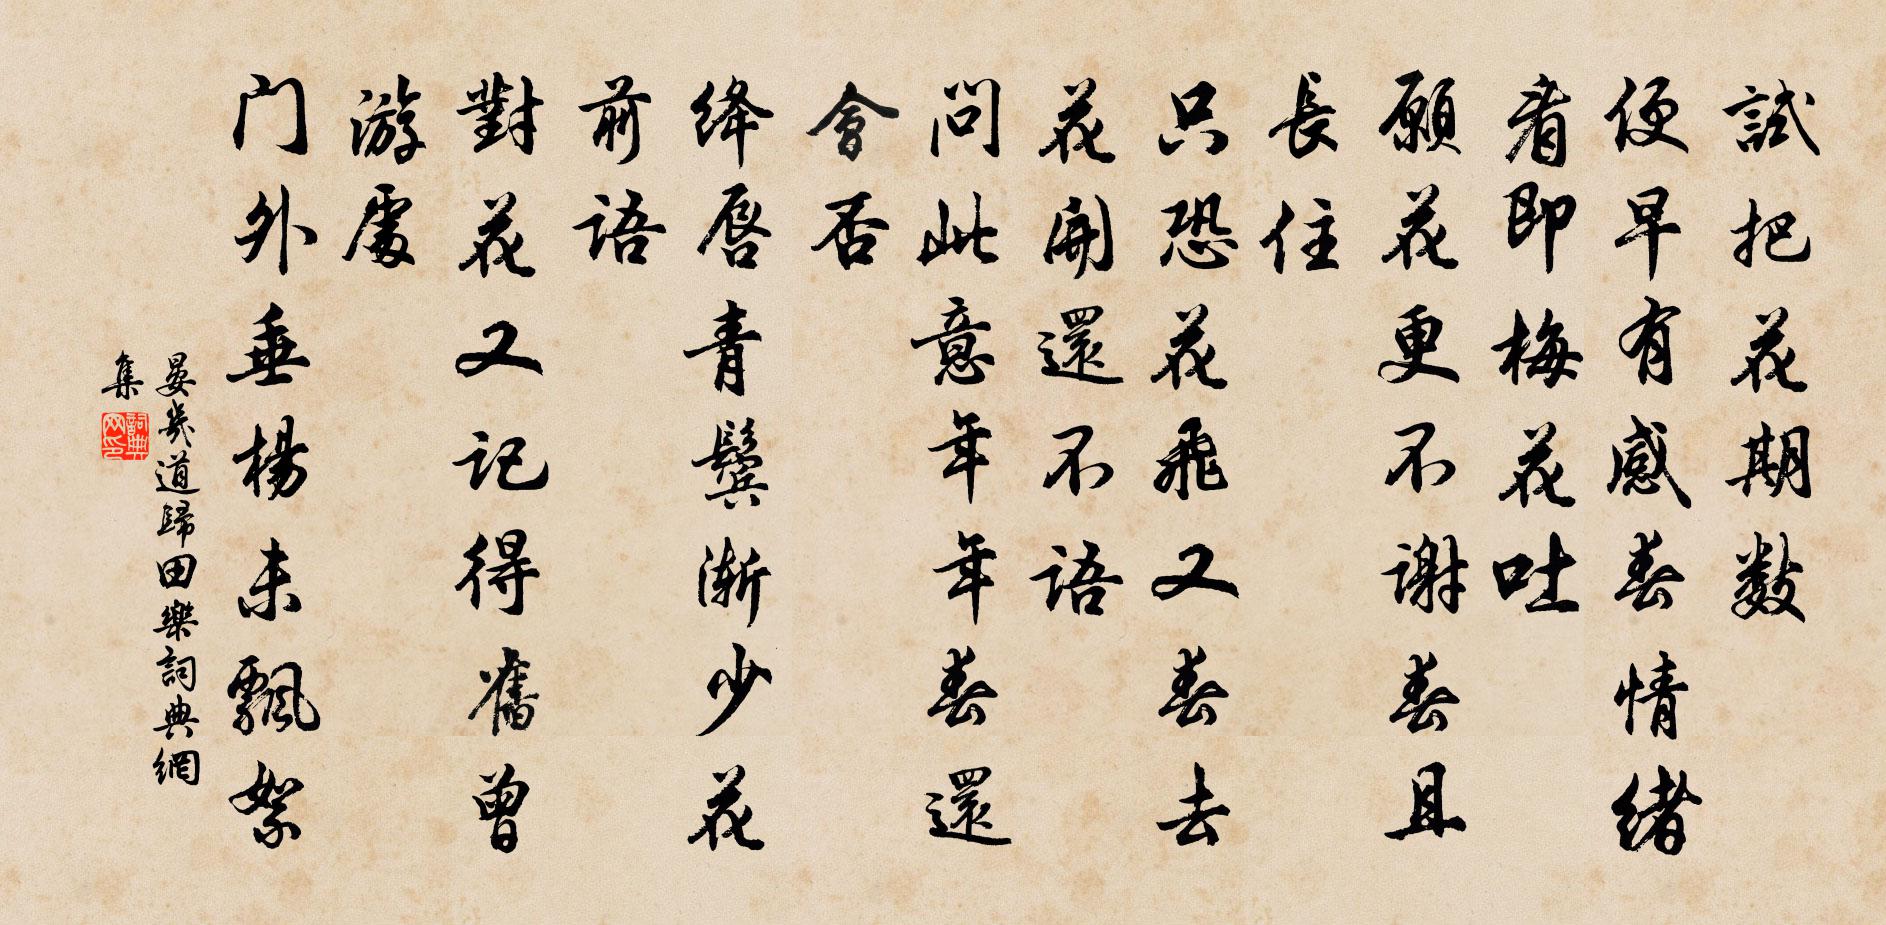 試把花期数
便早有感春情緒
看即梅花吐
願花更不謝春且
長住
只恐花飛又春去
花開還不語
問此意年年春還
會否
绛唇青鬓渐少花
前語
對花又记得舊曾
游處
门外垂楊未飄絮
晏幾道歸田樂詞典網
集
詞典网印